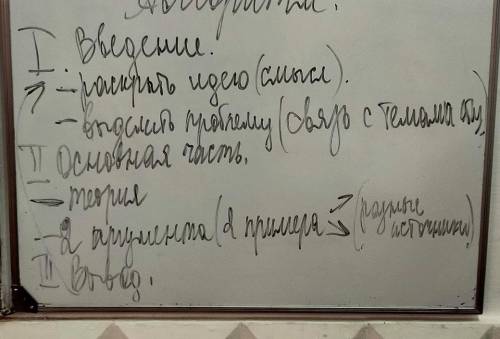 Алгоритм.
I. Введение.
- раскрыть идею (смысл).
- выделить проблему (связь с темами
II Основная часть.
- теория
- 2 аргумента (2 примера (разные источники)
III Вывод.